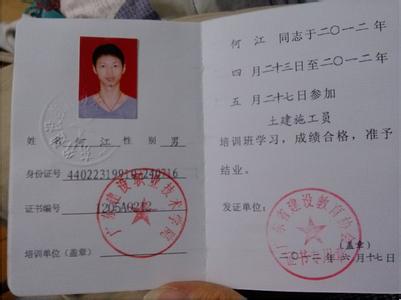 姓 名 何江 性 别 男
身份证号
证书编号 1205A0212
培训单位(盖章)
广东建设职业技术学院
何江 同志于二〇一二年
四 月二十三日至二〇一二年
五 月二十七日参加
土建施工员
培训班学习，成绩合格，准予
结业。
广东省建设教育协会
发证单位：
(盖章)
二〇一二年 六月十七日